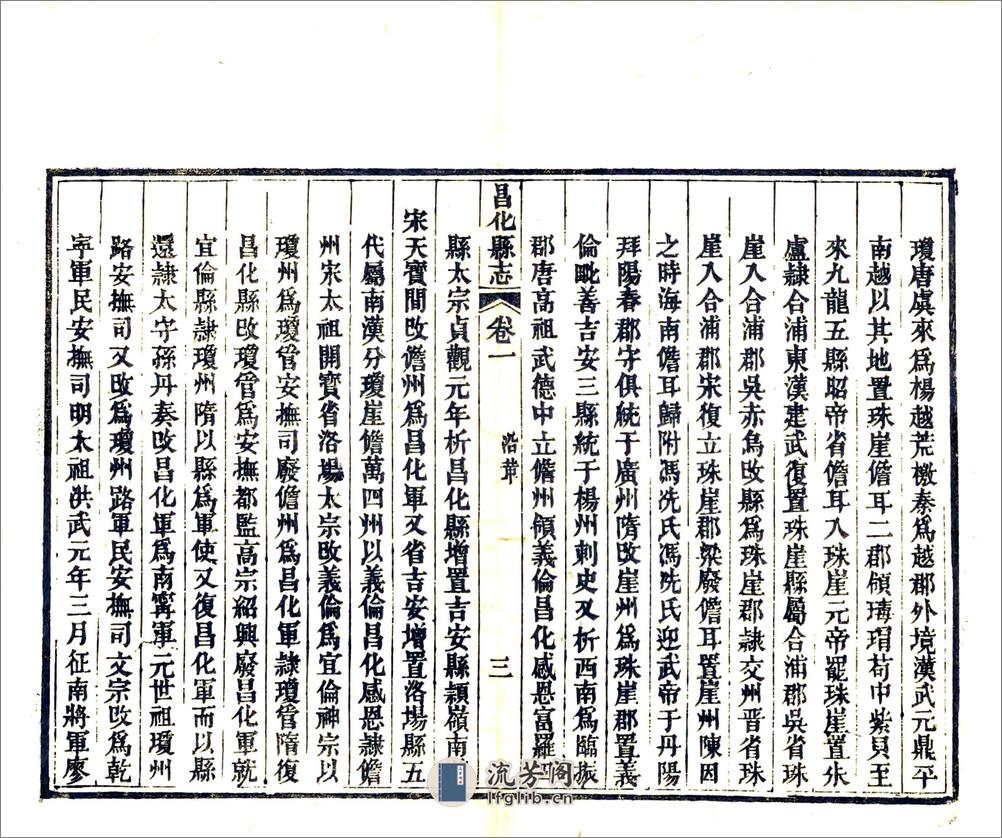 瓊唐虞來爲楊越荒檄秦爲越郡外境漢武元鼎平
南越以其地置珠崖儋耳二郡領瑇瑁苟中紫貝至
來九龍五縣昭帝省儋耳入珠崖元帝罷珠崖置朱
盧隸合浦東漢建武復置珠崖縣屬合浦郡吳省珠
崖入合浦郡吳赤烏改縣爲珠崖郡隸交州晋省珠
崖入合浦郡宋復立珠崖郡梁廢儋耳置崖州陳因
之時海南儋耳歸附馮冼氏馮冼氏迎武帝于丹陽
拜陽春郡守俱統于廣州隋改崖州爲珠崖郡置義
倫毗善吉安三縣統于楊州刺史又析西南爲臨振
郡唐高祖武德中立儋州領義倫昌化感恩富羅四
昌化縣志
卷一
沿革
三
縣太宗貞觀元年析昌化縣增置吉安縣顈嶺南
宋天寶間改儋州爲昌化軍又省吉安增置洛場縣五
代屬南漢分瓊崖儋萬四州以義倫昌化感恩隸儋
州宋太祖開寶省洛場太宗改義倫爲宜倫神宗以
瓊州爲瓊管安撫司廢儋州爲昌化軍隸瓊管隋復
昌化縣改瓊管爲安撫都監高宗紹興廢昌化軍就
宜倫縣隷瓊州隋以縣爲軍使又復昌化軍而以縣
還隸太守孫丹奏改昌化軍爲南寗軍元世祖瓊州
路安撫司又改爲瓊州路軍民安撫司文宗改爲乾
寧軍民安撫司明太祖洪武元年三月征南將軍廖
流芳阁
lfglib.cn